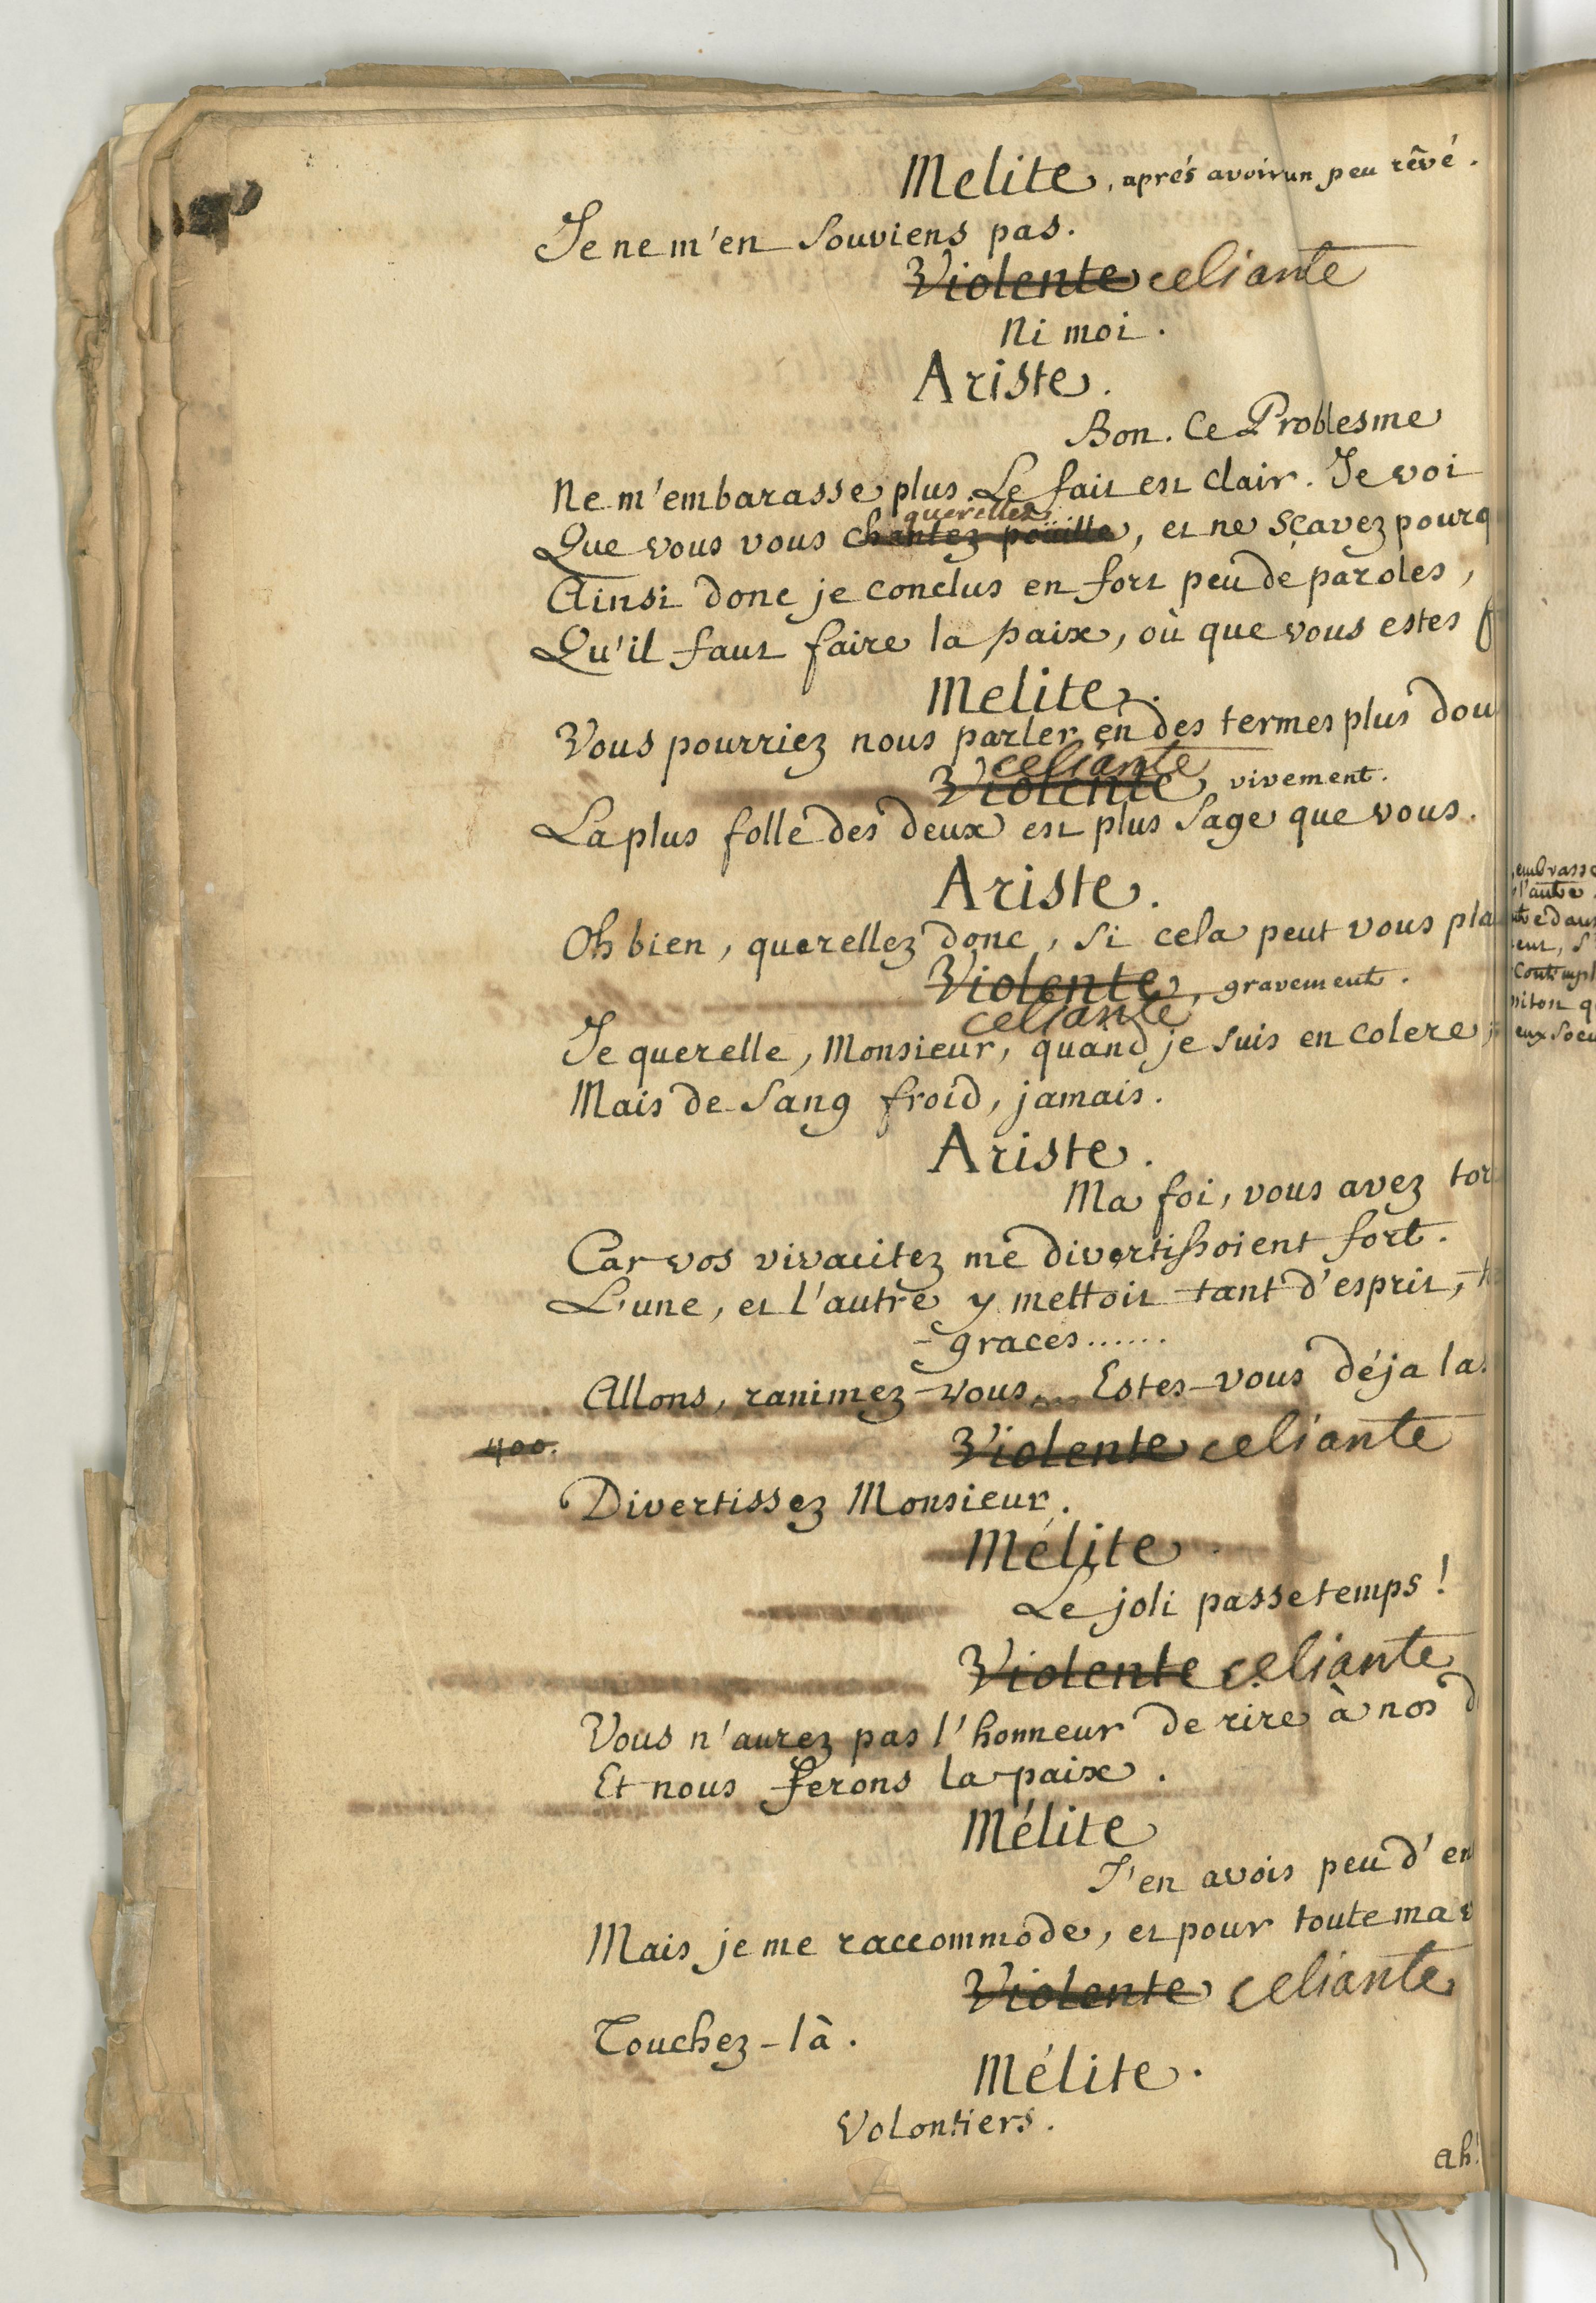 Melite, aprés avoir un peu rêvé.
Je ne m'en souviens pas.
Violente celiante
Ni moi.
Ariste.
Bon. Ce Problesme
Ne m'embarasse plus. Le fait est clair. Je voi
querellez
Que vous vous chantez poüille, et ne sçavez pourq
Ainsi donc je conclus en fort peu de paroles,
Qu'il faut faire la paix, où que vous estes f
Melite.
Vous pourriez nous parler en des termes plus dou
celiante
Violente, vivement.
La plus folle des deux est plus sage que vous.
Ariste.
Oh bien, querellez donc, si cela peut vous pla
Violente, gravement.
celiante
Je querelle, Monsieur, quand je suis en colere,
Mais de sang froid, jamais.
Ariste.
Ma foi, vous avez tor
Car vos vivacitez me divertissoient fort.
L'une, et l'autre y mettoit tant d'esprit, t
graces......
Allons, ranimez-vous. Estes-vous déja las
400.
Violente celiante
Divertissez Monsieur.
Mélite
Le joli passetemps!
Violente celiante
Vous n'aurez pas l'honneur de rire à nos d
Et nous ferons la paix.
Mélite
J'en avois peu d'en
Mais je me raccommode, et pour toute ma v
Violente celiante
Touchez-là.
Mélite.
Volontiers.
ah!
embrasse
l'autre.